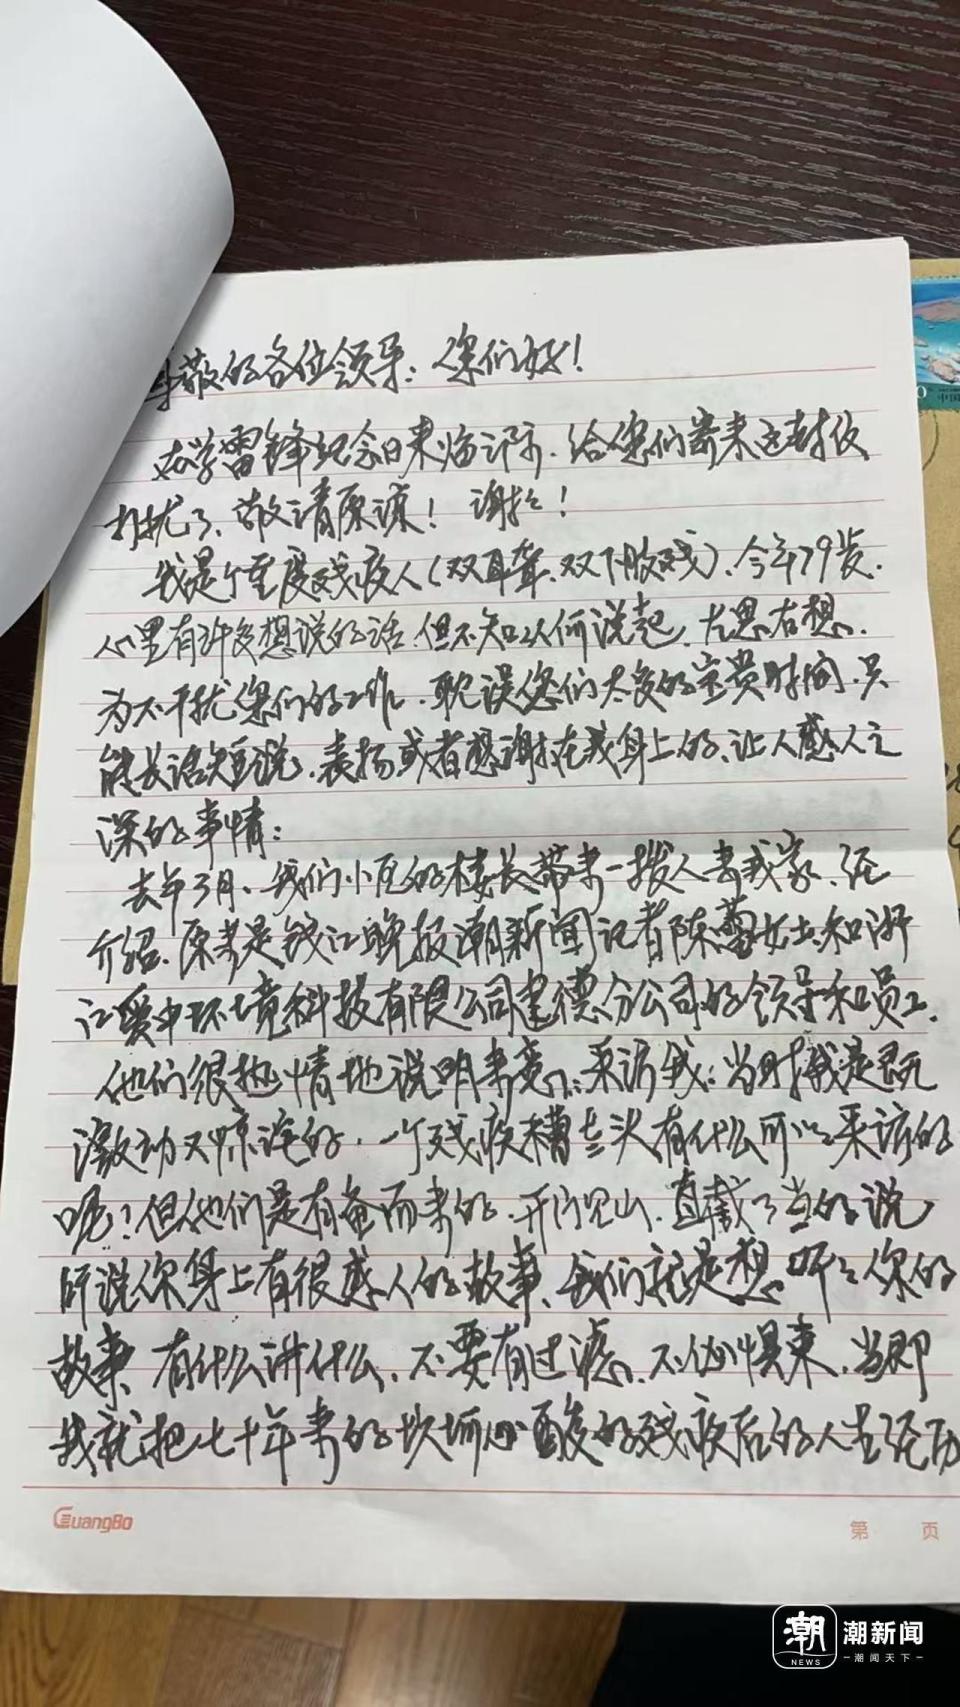 尊敬的各位领导：您们好！
在学雷锋纪念日来临之际、给您们寄来这封信
打扰了、敬请原谅！谢谢！
我是个重度残疾人（双耳聋、双下肢残）、今年79岁、
心里有许多想说的话、但不知从何说起、左思右想、
为不干扰您们的工作、耽误您们太多的宝贵时间、只
能长话短说、表扬或者感谢在我身上的、让人感人之
深的事情：
去年3月、我们小区的楼长带来一拨人来我家、经
介绍、原来是钱江晚报潮新闻记者陈蕾女士和浙
江爱中环境科技有限公司建德分公司的领导和员工、
他们很热情地说明来意：采访我：当时我是既
激动又惊诧的、一个残疾糟老头有什么可以采访的
呢？但他们是有备而来的、开门见山、直截了当的说
听说你身上有很感人的故事、我们就是想听听你的
故事、有什么讲什么、不要有过滤、不必惧束、当即
我就把七十年来的坎坷心酸的残疾后的人生经历
GuangBo
第 页
中国
潮
NEWS
潮新闻
潮闻天下